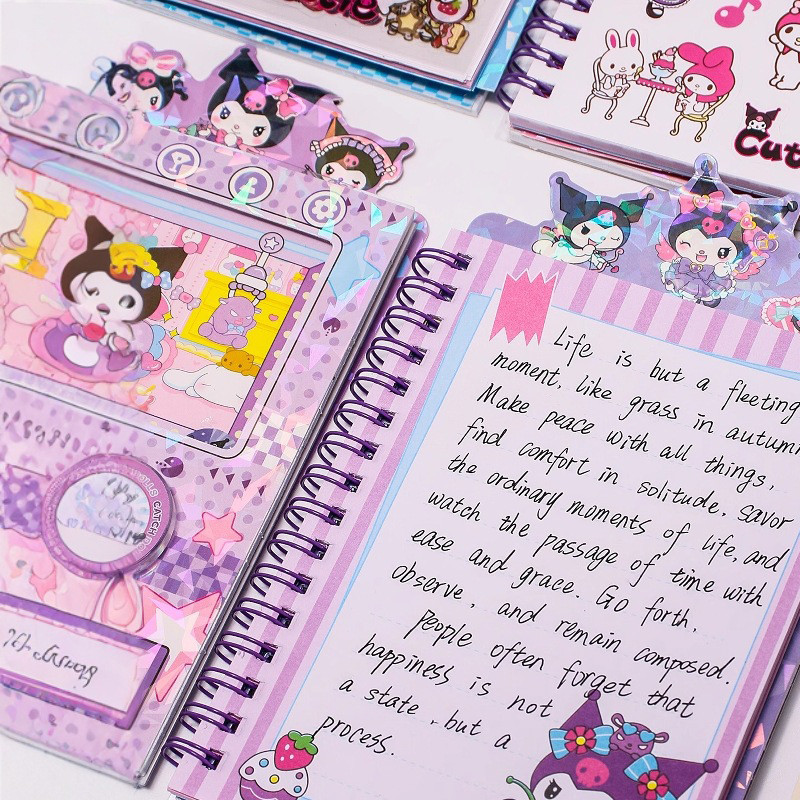 Cut
Life is but a fleeting
moment, like grass in autumn
Make peace with all things,
find comfort in solitude. savor
the ordinary moments of life, and
watch the passage of time with
ease and grace. Go forth,
observe, and remain composed.
people often forget that
happiness is not
a state, but a
process.